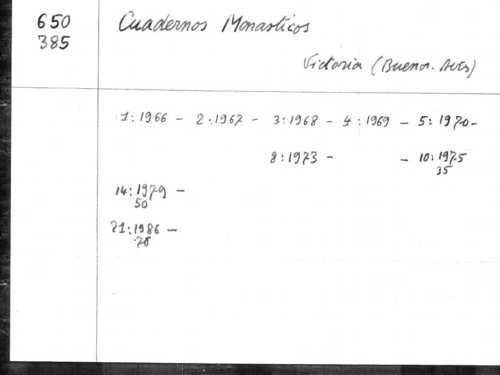 650 Cuadernos Monasticos
385
Victoria (Buenos-Aires)
1:1966 - 2:1967 - 3:1968 - 4:1969 - 5:1970-
8:1973 - - 10:1975
35
14:1979 -
50
21:1986 -